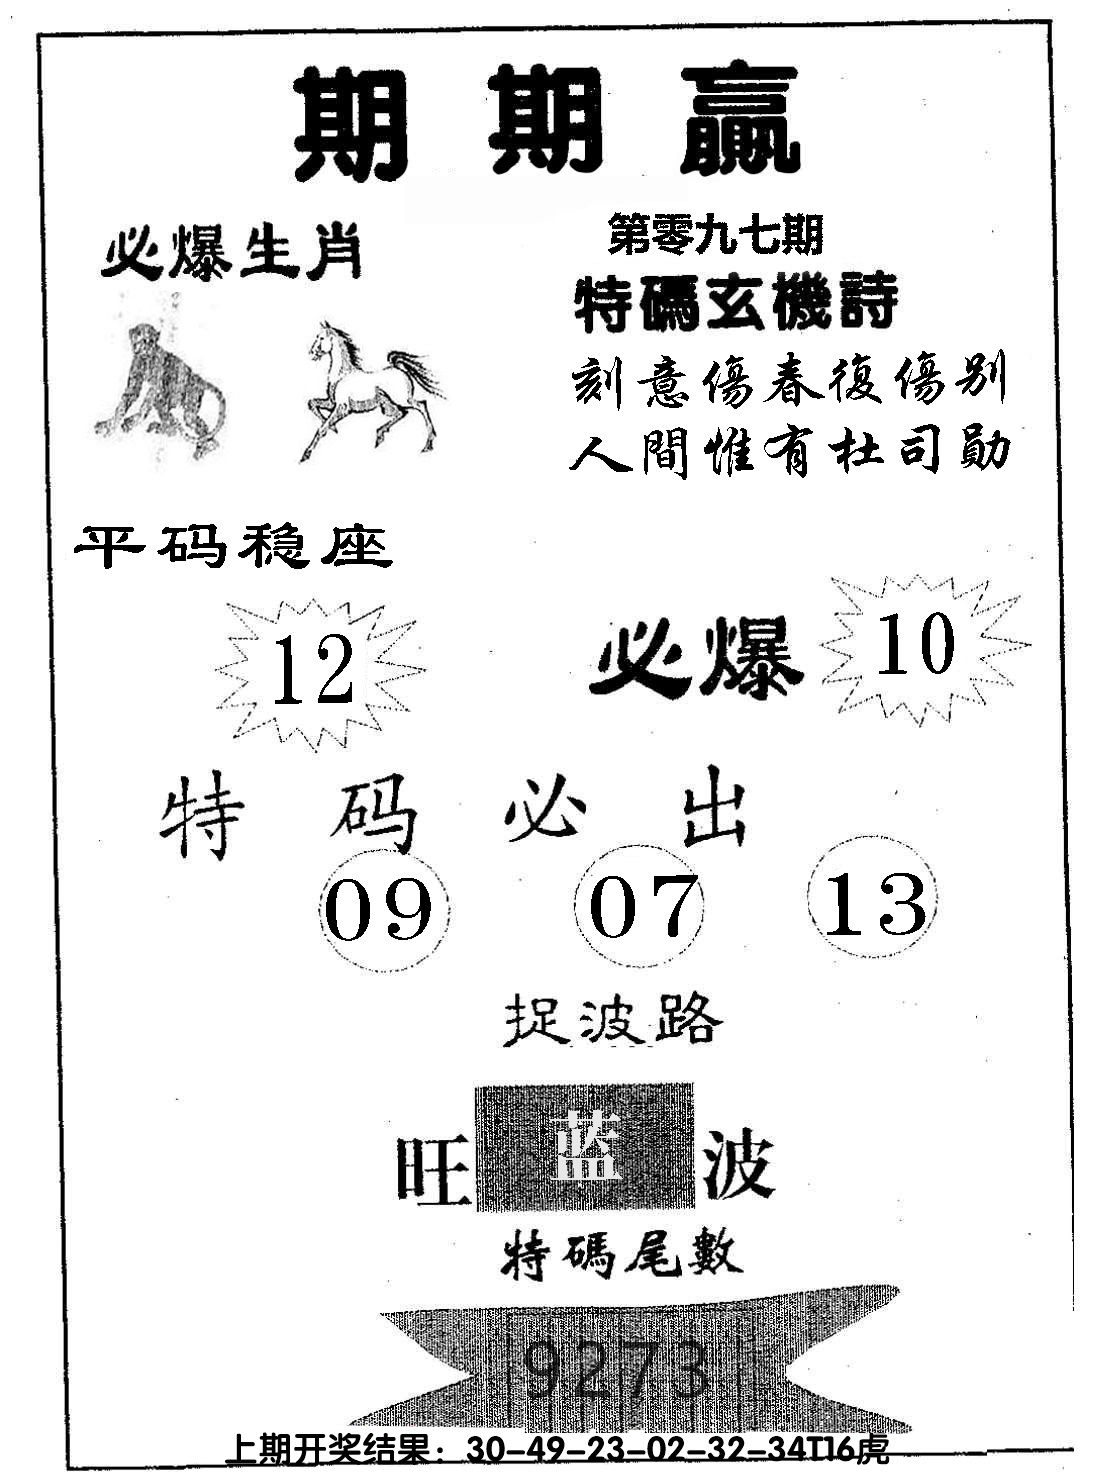 期期赢
必爆生肖
第零九七期
特碼玄機詩
刻意傷春復傷别
人間惟有杜司勛
平码稳座
12
必爆 10
特码必出
09 07 13
捉波路
旺 蓝 波
特碼尾數
9273
上期开奖结果：30-49-23-02-32-34T16虎